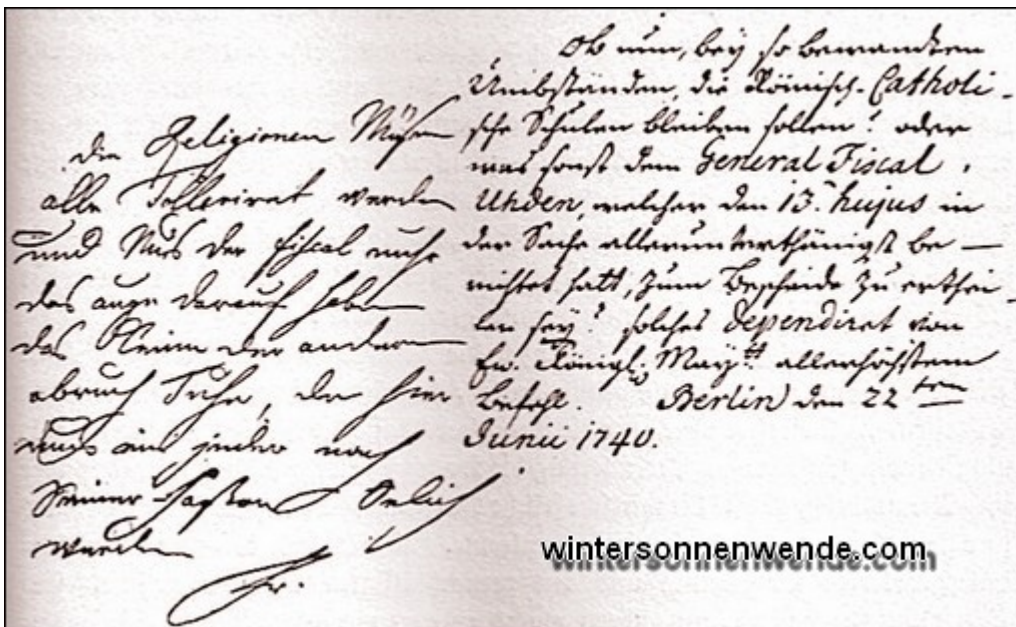 Ob nun, bey so bewandten
Umbständen, die Römisch-Catholi-
sche Schulen bleiben sollen? oder
was sonst dem General Fiscal
Uhden, welcher den 13. hujus in
der Sache allerunterthänigst be-
richtet hatt, zum Bescheide zu erthei-
len sey? solches dependiret von
Ew. Königl: Mayt: allerhöchstem
Befehl. Berlin den 22ten
Junii 1740.
die Religionen Müsen
alle Tolleriret werden
und Mus der fiscal nuhr
das auge darauf haben
das Keine der andern
abruch Tuhe, den hier
mus ein jeder nach
Seiner Fasson Selich
werden
Fr.
wintersonnenwende.com